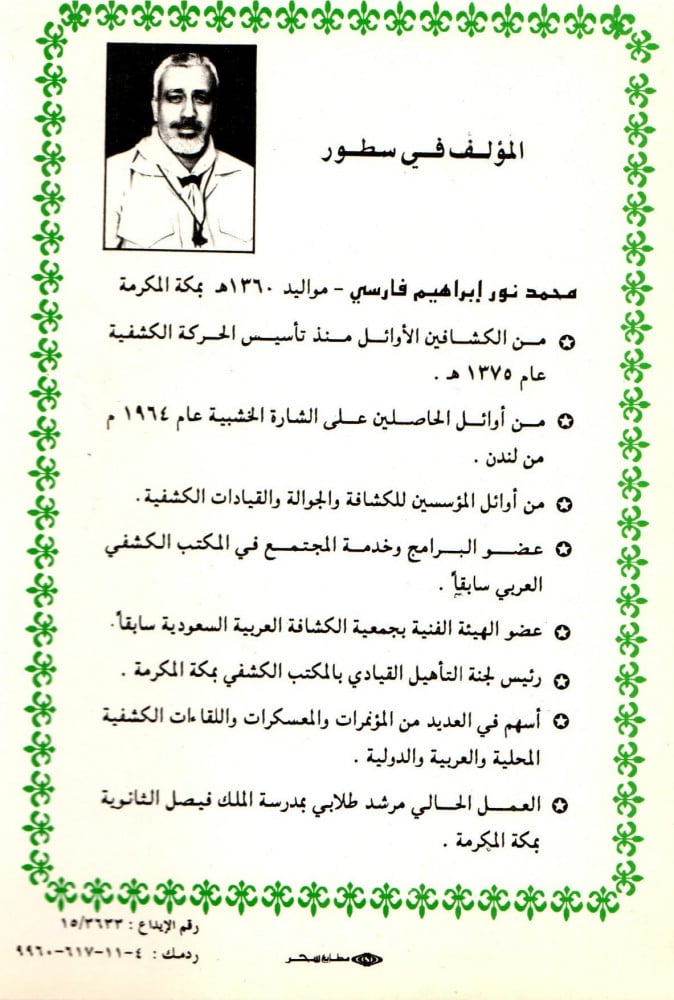 المؤلف في سطور
محمد نور إبراهيم فارسي - مواليد ١٣٦٠هـ بمكة المكرمة
من الكشافين الأوائل منذ تأسيس الحركة الكشفية
عام ١٣٧٥ هـ .
من أوائل الحاصلين على الشارة الخشبية عام ١٩٦٤ م
من لندن .
من أوائل المؤسسين للكشافة والجوالة والقيادات الكشفية .
عضو البرامج وخدمة المجتمع في المكتب الكشفي
العربي سابقاً .
عضو الهيئة الفنية بجمعية الكشافة العربية السعودية سابقاً .
رئيس لجنة التأهيل القيادي بالمكتب الكشفي بمكة المكرمة .
أسهم في العديد من المؤتمرات والمعسكرات واللقاءات الكشفية
المحلية والعربية والدولية .
العمل الحالي مرشد طلابي بمدرسة الملك فيصل الثانوية
بمكة المكرمة .
رقم الإيداع : ١٥/٣٦٣٣
ردمك : ٤-١١-٦١٧-٩٩٦٠
مطابع سحر